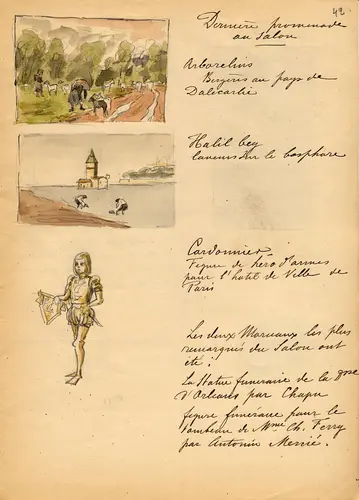 42
Dernière promenade
au Salon
Arborelius
Bergères au pays de
Dalécarlie
Halil bey
laveuses sur le bosphore
Cordonnier
Figure de héro d'armes
pour l'hotel de Ville de
Paris
Les deux Morceaux les plus
remarqués du Salon ont
été :
La Statue funéraire de la
D'Orléans par Chapu
figure funéraue pour le
tombeau de Mme Ch. Ferry
par Antonin Mercié.